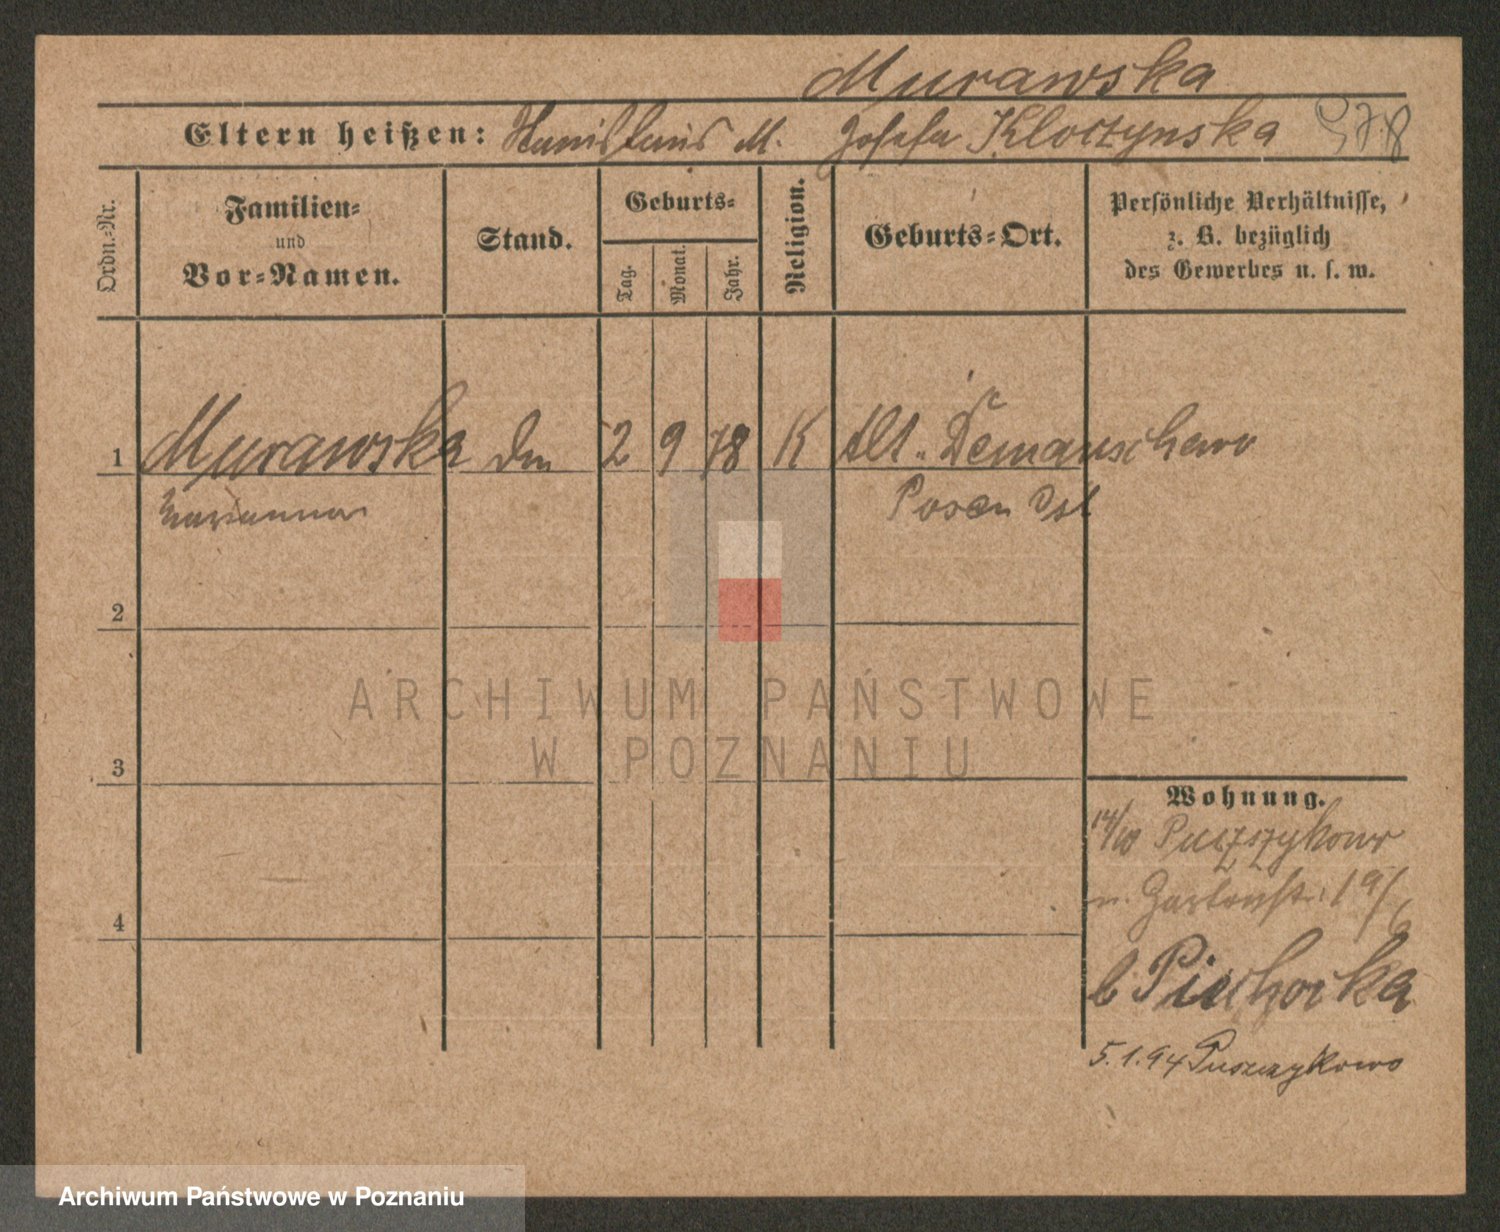 Murawska
Eltern heißen: Stanislaus M. Josefa Kloczynska 578
Ordn.-Nr.
Familien-
und
Vor-Namen.
Stand.
Geburts-
Tag.
Monat.
Jahr.
Religion.
Geburts-Ort.
Persönliche Verhältnisse,
z. B. bezüglich
des Gewerbes u. s. w.
1 Murawska Dm 2 9 78 K Alt-Demanschewo
Marianna Posen Ost
2
3
4
Wohnung.
14/10 Puszzykowo
n. Gartenstr. 19/6
b Piechocka
5.1.94 Puszczykowo
ARCHIWUM PAŃSTWOWE
W POZNANIU
Archiwum Państwowe w Poznaniu